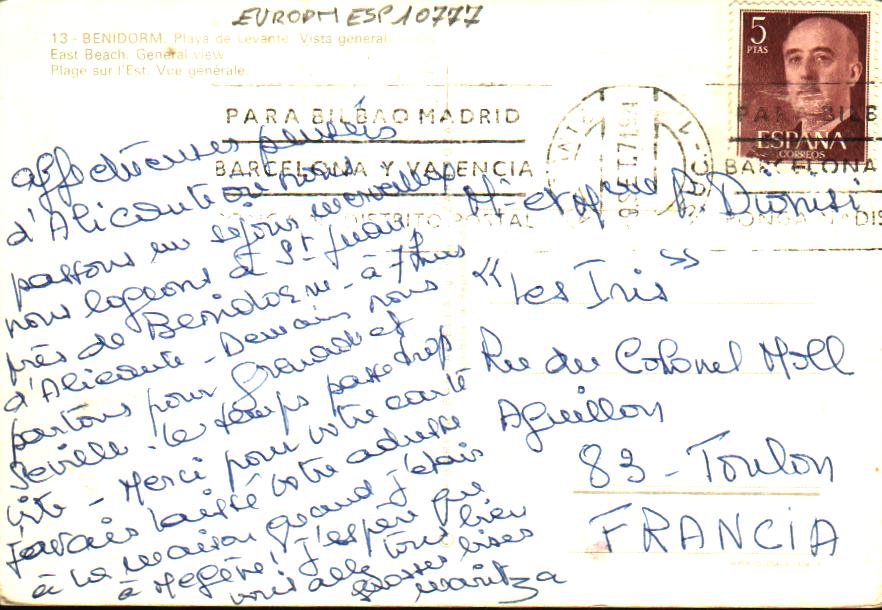 EUROPM ESP 10777
13 - BENIDORM. Playa de Levante. Vista general
East Beach. General view
Plage sur l'Est. Vue générale.
5
PTAS
ESPAÑA
CORREOS
PARA BILBAO MADRID
BARCELONA Y VALENCIA
DISTRITO POSTAL
PARA BILB
BARCELONA
PONGA DIS
affectueuses pensées
d'Alicante où nous
passons un séjour merveilleux
nous logeons à St Juan,
près de Benidorm - à 7 kms
d'Alicante - Demain nous
partons pour Grenade et
Seville - le temps passe trop
vite - Merci pour votre carte
j'avais laissé votre adresse
à la maison quand j'étais
à Megève! j'espère que
vous allez tous bien
grosses bises
Maritza
Mr et Mme P Dionisi
"Les Iris"
Rue du Colonel Moll
Aguillon
83 - Toulon
FRANCIA